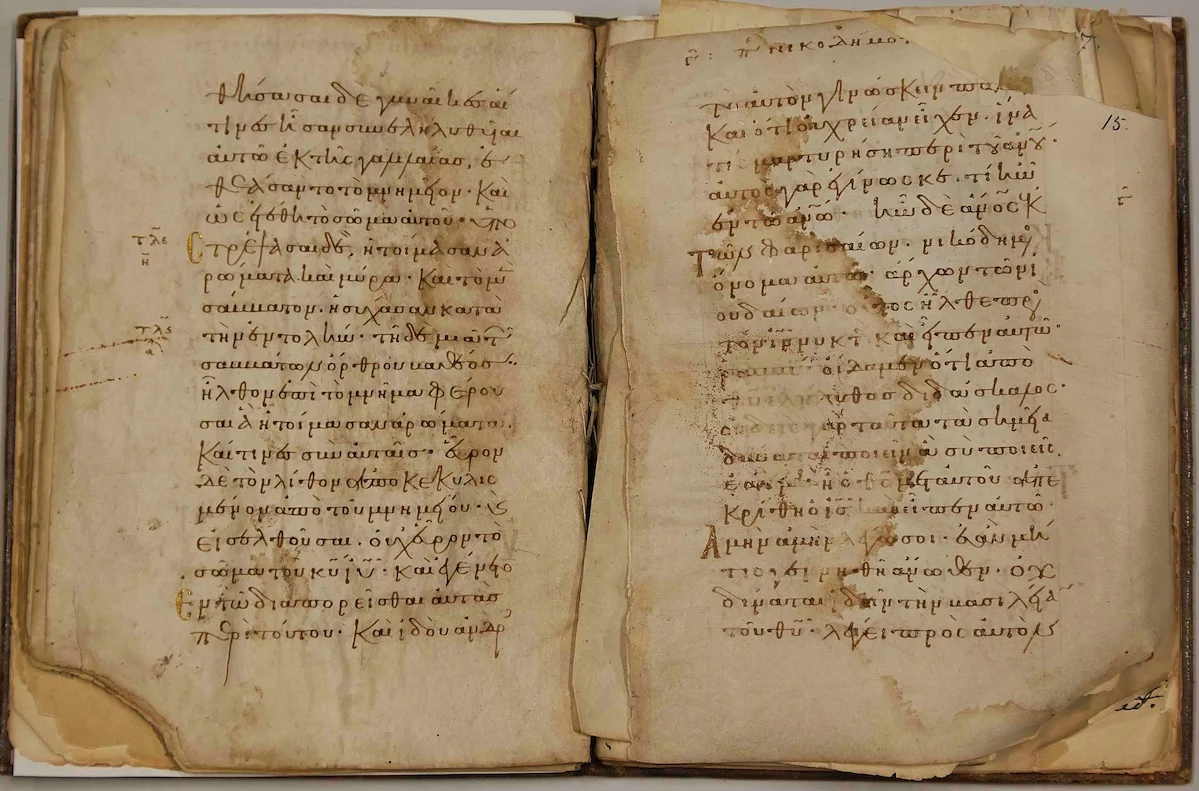 θήσασαι δὲ γυναῖκες αἵ
τινες ἦσαν συνεληλυθυῖαι
αὐτῶ ἐκ τῆς γαλλιλαίας,
θεάσαντο τὸ μνημεῖον· Καὶ
ὡς ἐτέθη τὸ σῶμα αὐτοῦ· ὑπο
στρέψασαι δὲ, ἡτοίμασαν ἀ
ρώματα καὶ μύρα· Καὶ τὸ μὲν
σάββατον· ἡσύχασαν κατὰ
τὴν ἐντολήν· τῆ δὲ μιᾶ τῶν
σαββάτων ὄρθρου βαθέος·
ἦλθον ἐπὶ τὸ μνῆμα φέρου
σαι ἃ ἡτοίμασαν ἀρώματα·
Καί τινες σὺν αὐταῖς· εὗρον
δὲ τὸν λίθον ἀποκεκυλισ
μένον ἀπὸ τοῦ μνημείου· καὶ
εἰσελθοῦσαι· οὐχ εὗρον τὸ
σῶμα τοῦ κυ ιυ· καὶ ἐγένετο
ἐν τῶ διαπορεῖσθαι αὐτὰς
περὶ τούτου· Καὶ ἰδοὺ ἄνδρ
νικοδήμου
7
15
τὸ αὐτὸν γινώσκειν
Καὶ ὅτι οὐ χρείαν εἶχεν· ἵνα
τις μαρτυρήση περὶ τοῦ ἀνου·
αὐτὸς γὰρ ἐγίνωσκε· τί ἦν
ἐν τῶ ἀνω· ἦν δὲ ἀνος ἐκ
τῶν φαρισαίων· νικόδημος
ὄνομα αὐτῶ· ἄρχων τῶν ἰ
ουδαίων· οὗτος ἦλθε πρὸς
τὸν ιν νυκτ καὶ εἶπεν αὐτῶ·
ραββι οἴδαμεν ὅτι ἀπὸ
θυ ἐλήλυθας διδάσκαλος·
οὐδεὶς γὰρ ταῦτα τὰ σημεῖα
δύναται ποιεῖν ἃ σὺ ποιεῖς
ἐὰν μὴ ἦ ὁ θς μετ αὐτοῦ ἀπε
κρίθη ὁ ις καὶ εἶπεν αὐτῶ·
Ἀμὴν ἀμὴν λέγω σοι· ἐὰν μή
τις γεννηθῆ ἄνωθεν· οὐ
δύναται ἰδεῖν τὴν βασιλείαν
τοῦ θυ· λέγει πρὸς αὐτὸν